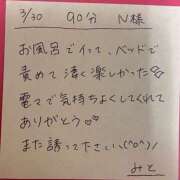 3/30 90分 N様
お風呂でイって、ベッドで
責めて凄く楽しかった
電マで気持ちよくしてくれて
ありがとう♡♡
また誘ってください(^o^)/
みと